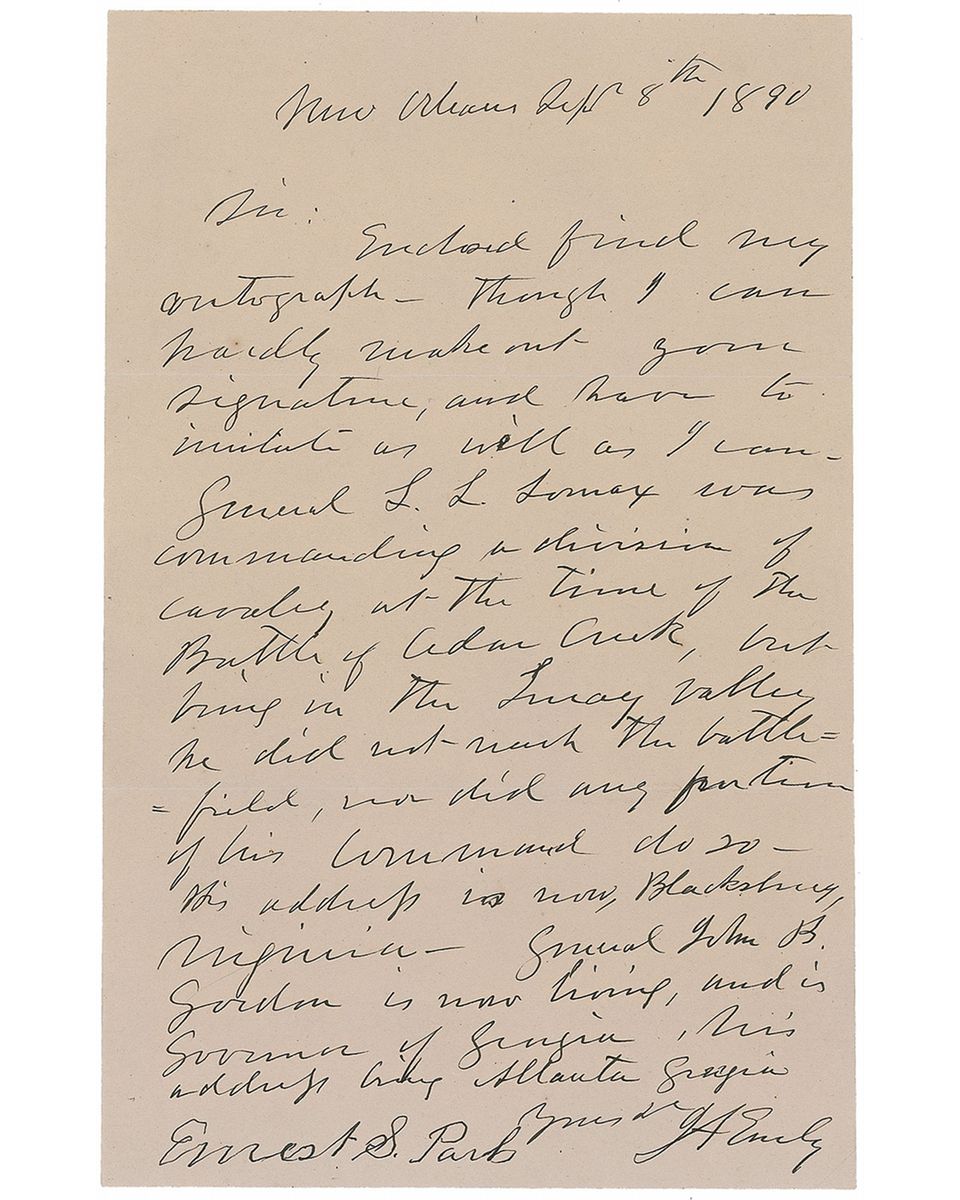 New Orleans Sept 8th 1890
Sir:
Enclosed find my
autograph – though I can
hardly make out your
signature, and have to
imitate as well as I can –
General L. L. Lomax was
commanding a division of
cavalry at the time of the
Battle of Cedar Creek, but
being in the Luray valley
he did not reach the battle=
=field, nor did any portion
of his command do so –
His address is now, Blacksburg,
Virginia – General John B.
Gordon is now living, and is
Governor of Georgia, his
address being Atlanta Georgia
Yours &c J A Early
Ernest S. Park